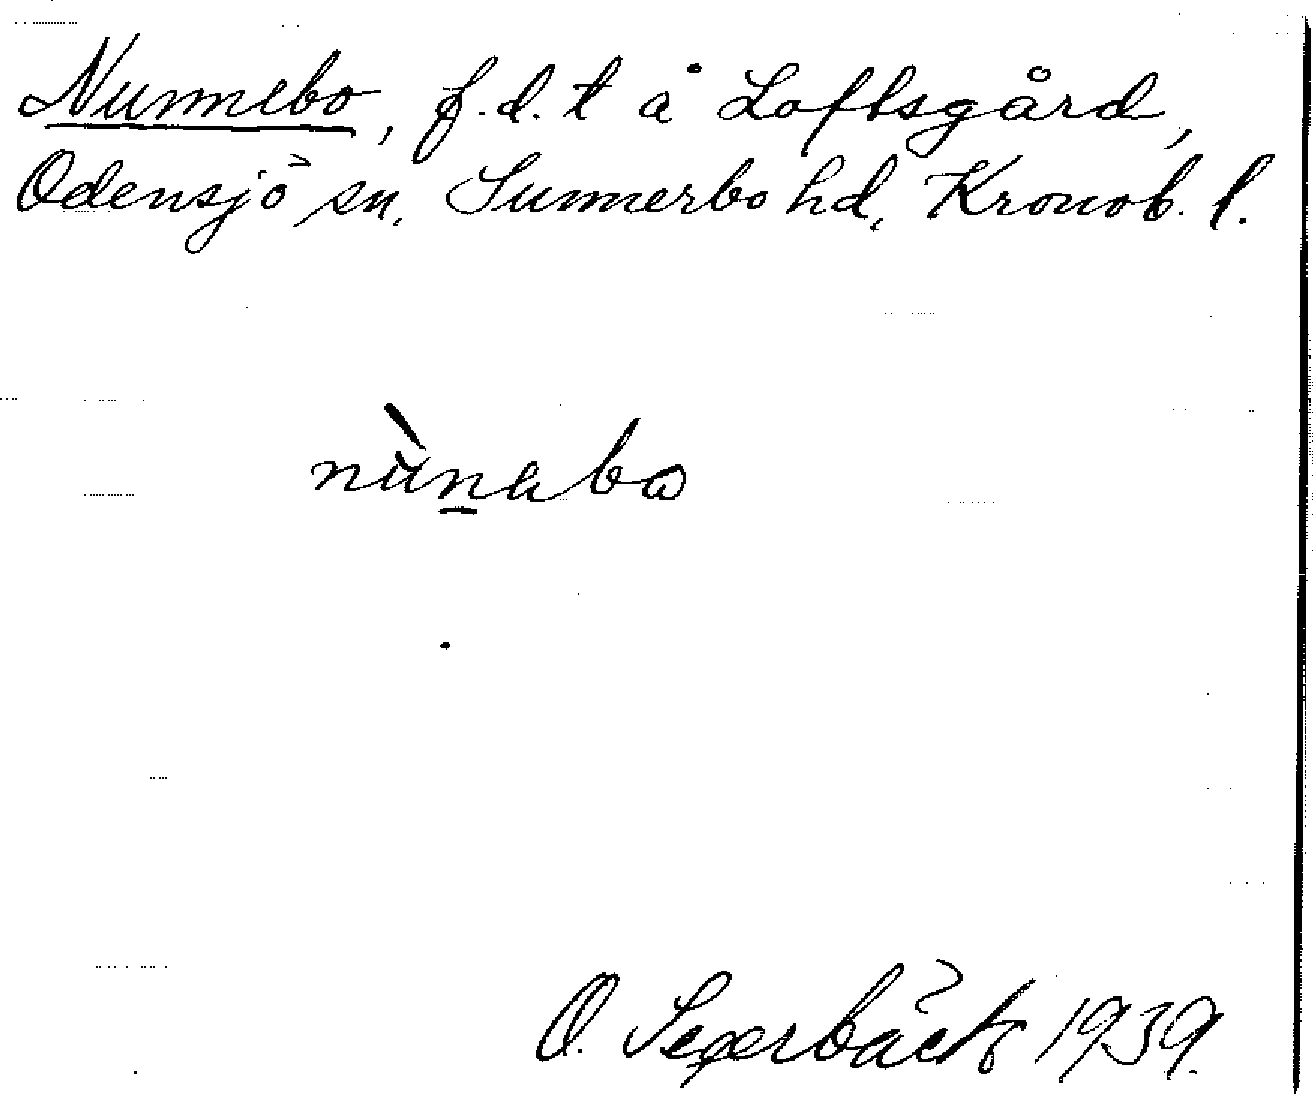 Nunnebo, f.d. t å Loftsgård,
Odensjö sn, Sunnerbo hd, Kronob. l.
nùn̲abo
O. Segerbäck 1939.